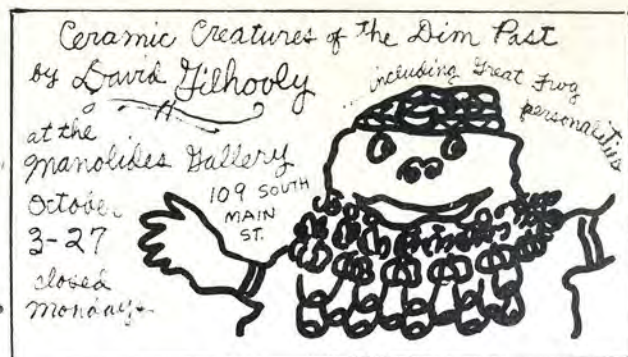 Ceramic Creatures of the Dim Past
by David Gilhooly
...including Great Frog
personalities
at the
Manolides Gallery
109 SOUTH
MAIN
ST.
October
3-27
closed
Mondays